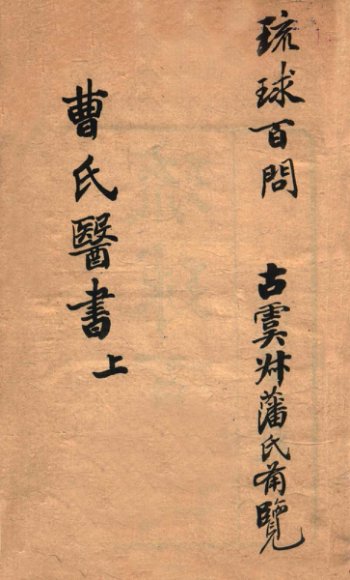 琉球百問
古虞藩氏甫覽
曹氏醫書上